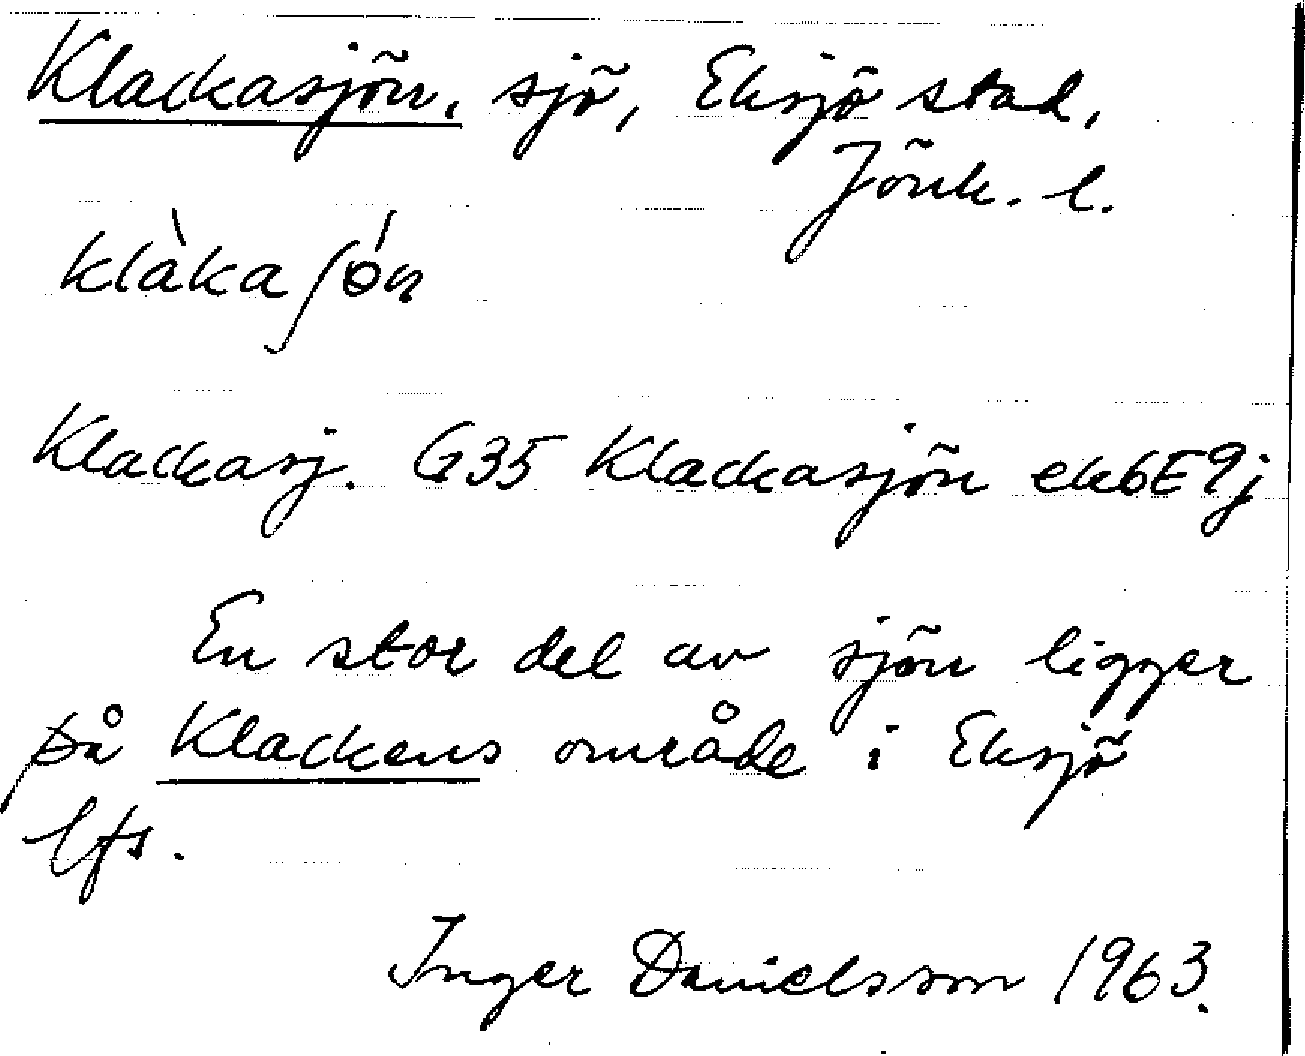 Klackasjön, sjö, Eksjö stad,
Jönk. l.
klàkaʃǿn
Klackasj. G35 Klackasjön ek6E9j
En stor del av sjön ligger
på Klackens område i Eksjö
lfs.
Inger Danielsson 1963.